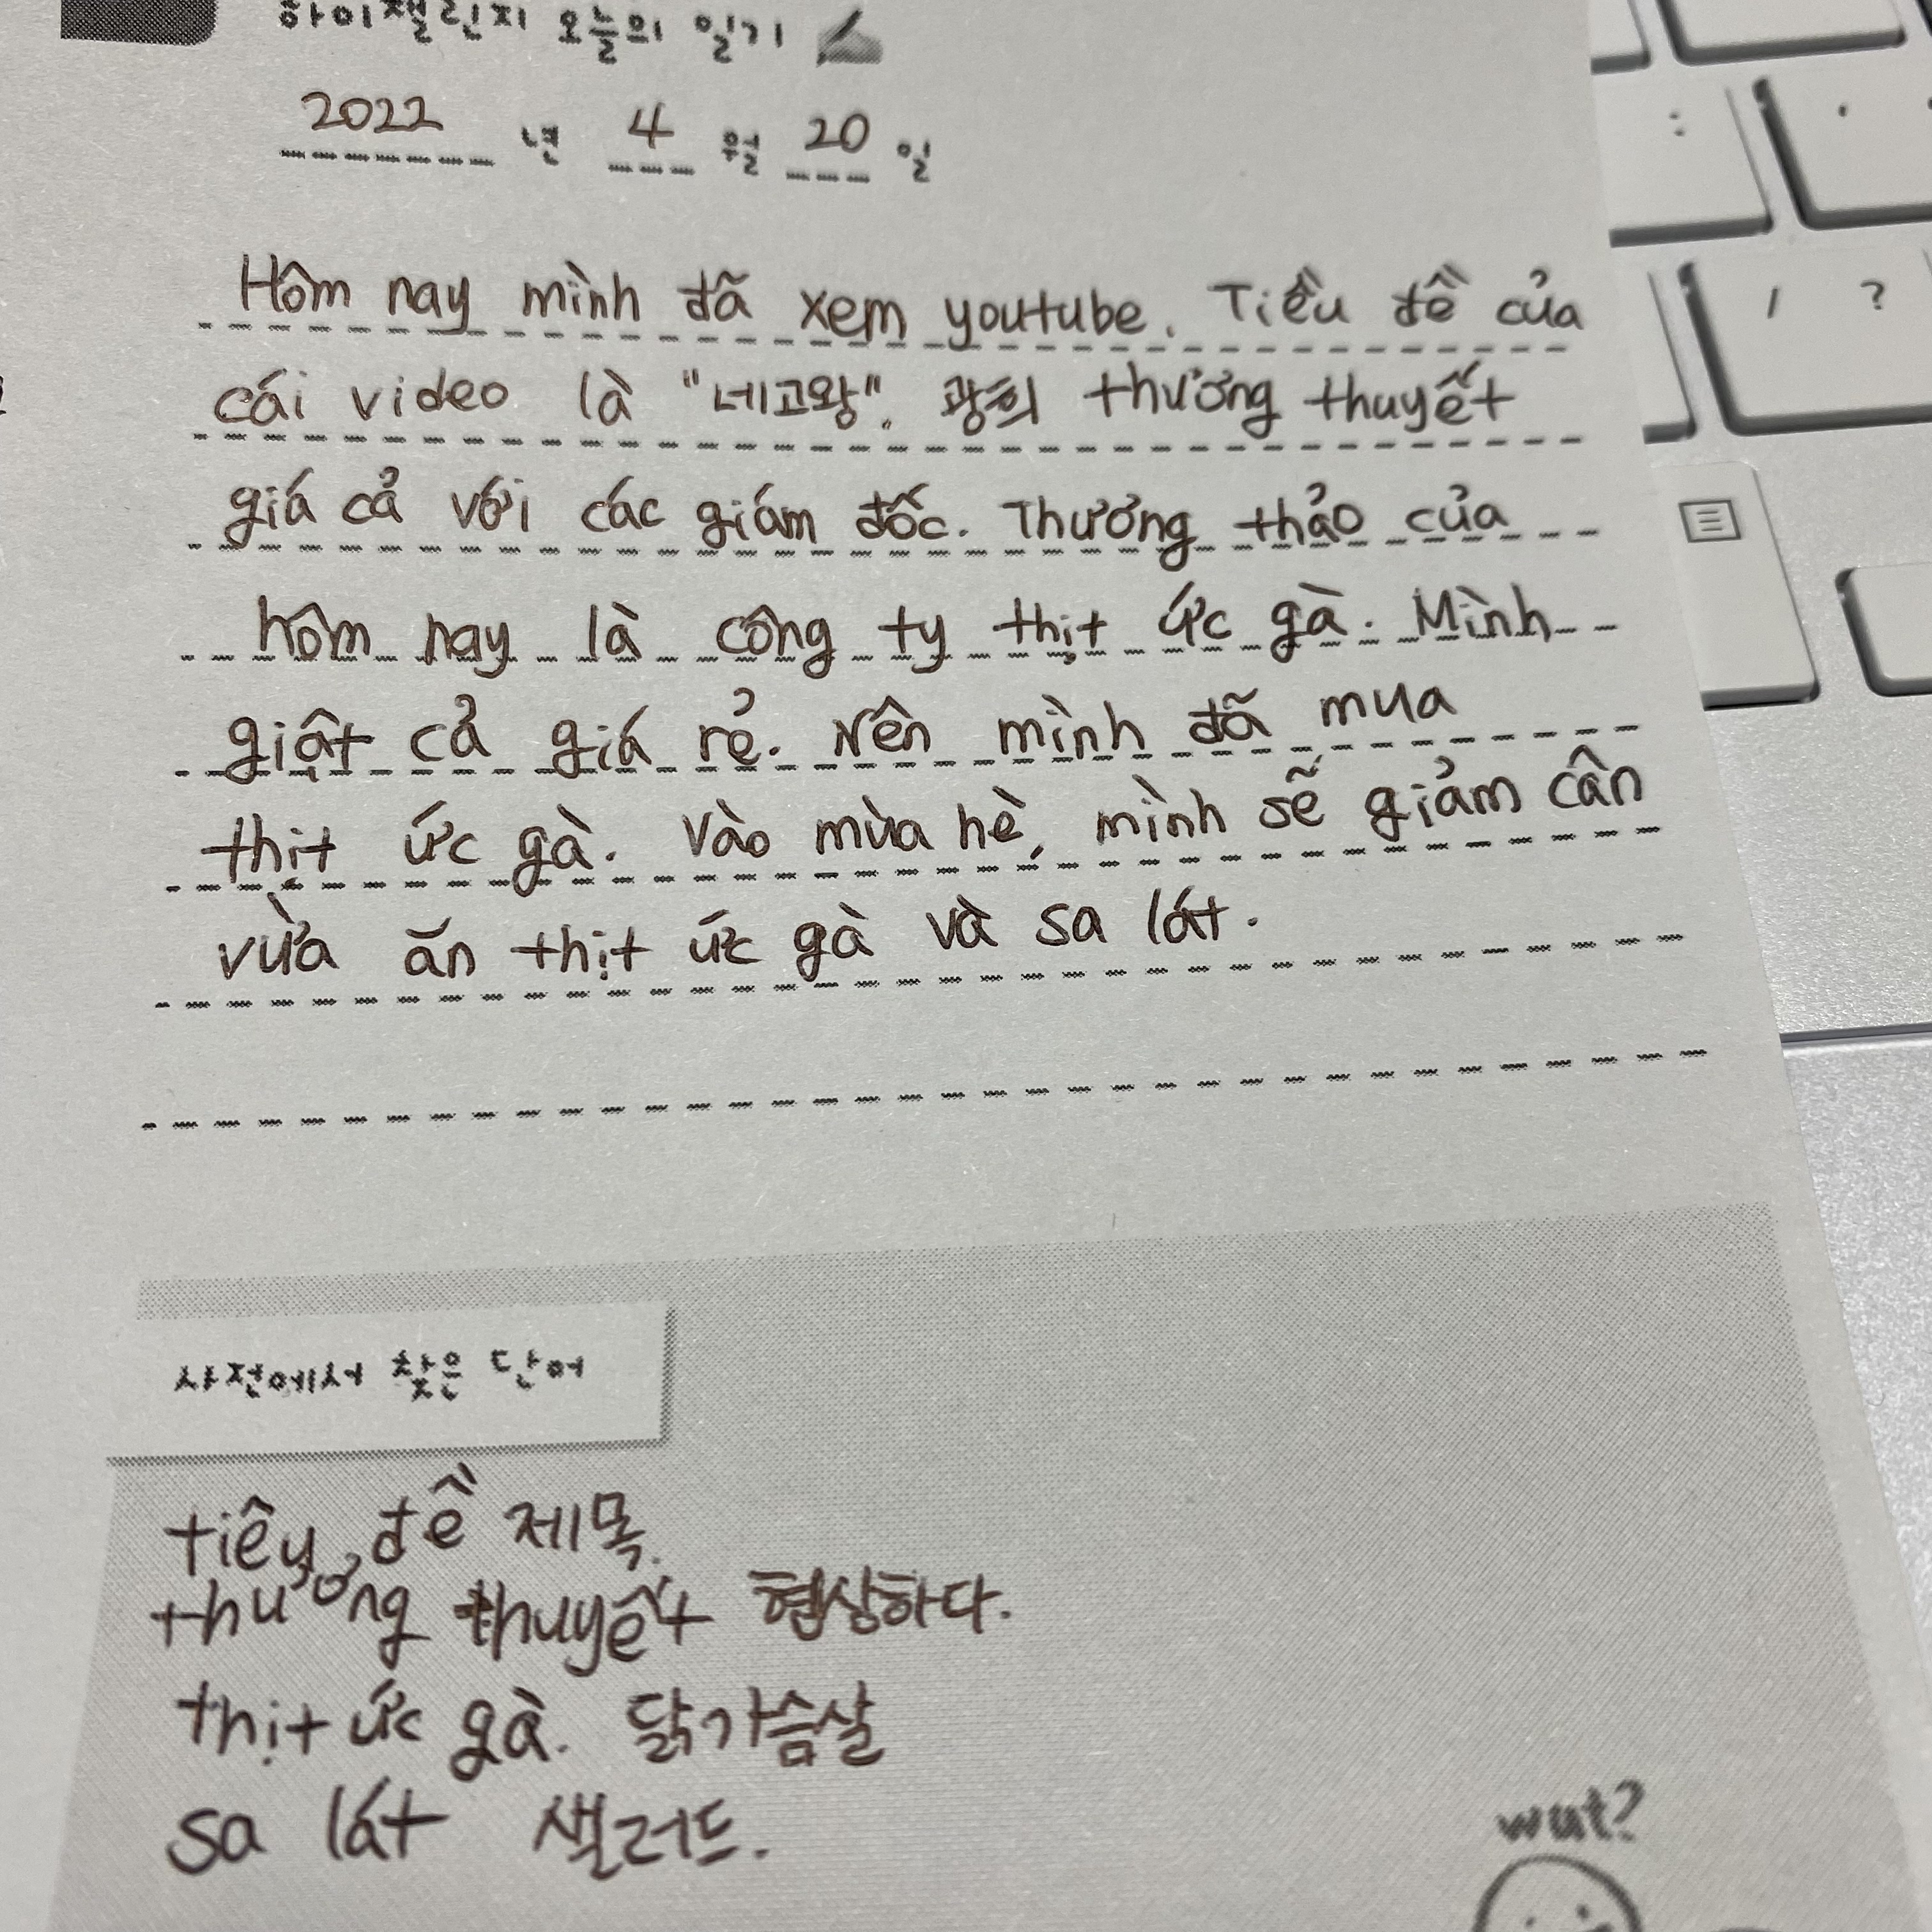 하이챌린지 오늘의 일기
2022 년 4 월 20 일
Hôm nay mình đã xem youtube. Tiều đề của
cái video là "네고왕". 광희 thương thuyết
giá cả với các giám đốc. Thương thảo của
hôm nay là công ty thịt ức gà. Mình
giật cả giá rẻ. Nên mình đã mua
thịt ức gà. Vào mùa hè, mình sẽ giảm cân
vừa ăn thịt ức gà và sa lát.
사전에서 찾은 단어
tiêu đề 제목.
thương thuyết 협상하다.
thịt ức gà. 닭가슴살
sa lát 샐러드.
wut?
: ' / ?